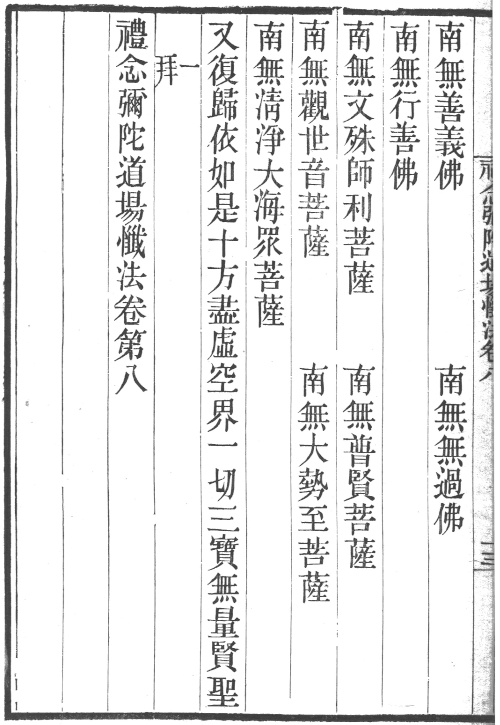 南無善義佛　南無無過佛
南無行善佛
南無文殊師利菩薩　南無普賢菩薩
南無觀世音菩薩　南無大勢至菩薩
南無清淨大海眾菩薩
又復歸依如是十方盡虛空界一切三寶無量賢聖
一拜
禮念彌陀道場懺法卷第八